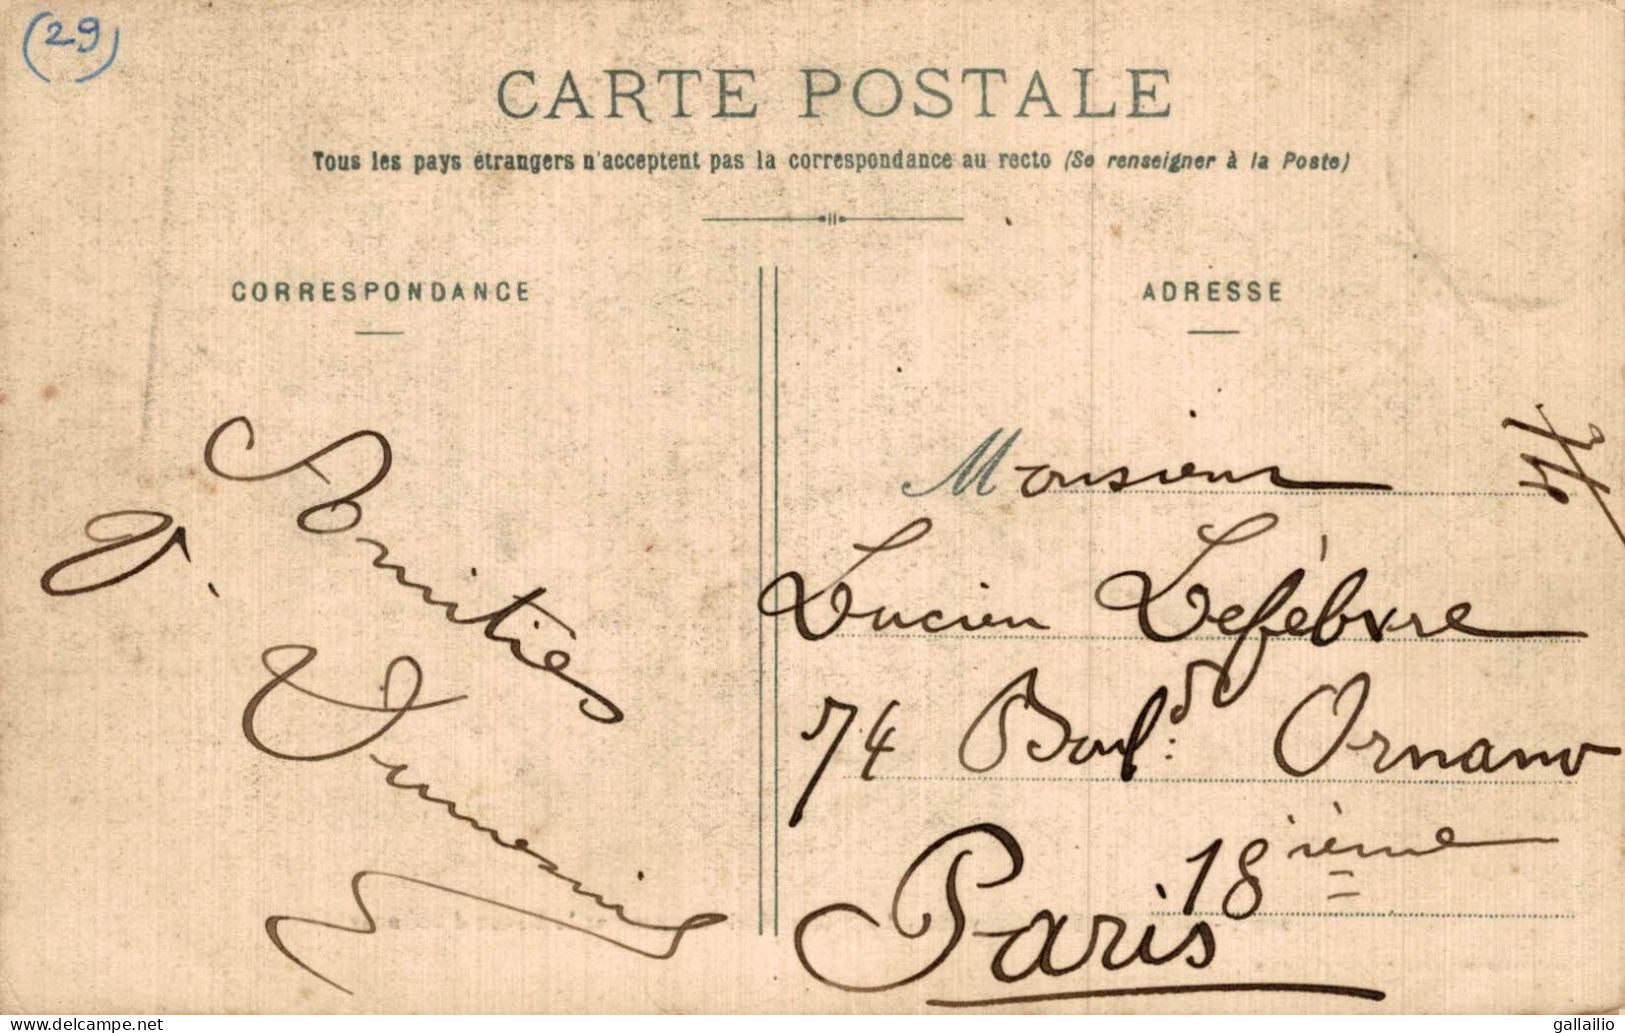 (29)
CARTE POSTALE
Tous les pays étrangers n'acceptent pas la correspondance au recto (Se renseigner à la Poste)
CORRESPONDANCE
Amitiés
V.
ADRESSE
Monsieur
Lucien Lefébvre
74 Boul.d Ornano
18ième
Paris
gallailio